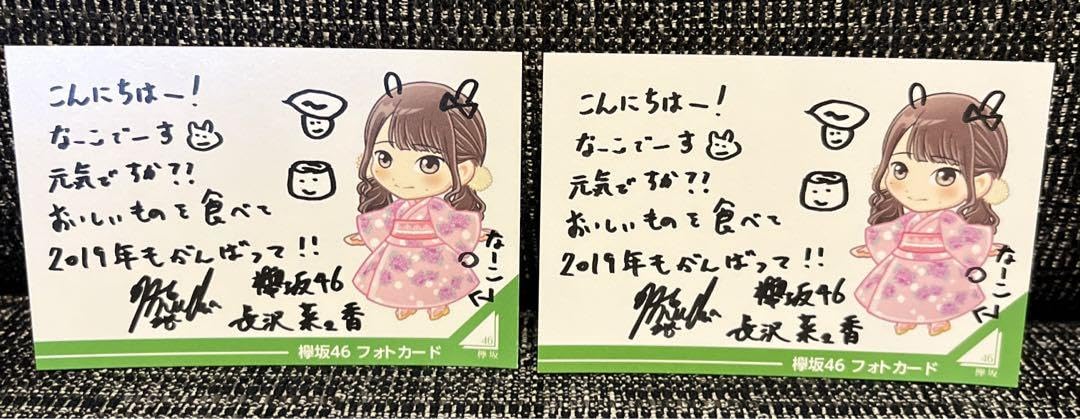 こんにちはー!
なーこでーす
元気ですか??
おいしいものを食べて
2019年もがんばって!!
欅坂46
長沢菜々香
なーこ
欅坂46 フォトカード
46
欅坂
こんにちはー!
なーこでーす
元気ですか??
おいしいものを食べて
2019年もがんばって!!
欅坂46
長沢菜々香
なーこ
欅坂46 フォトカード
46
欅坂